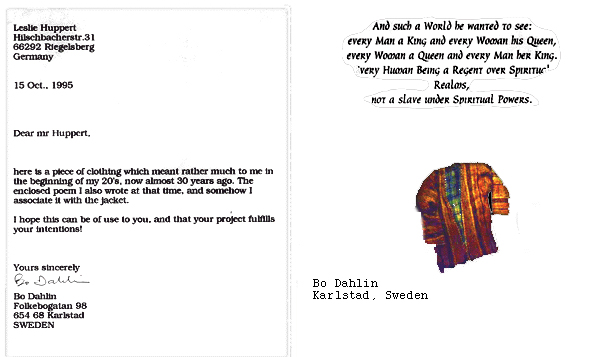 Leslie Huppert
Hilschbacherstr.31
66292 Riegelsberg
Germany
15 Oct., 1995
Dear mr Huppert,
here is a piece of clothing which meant rather much to me in
the beginning of my 20's, now almost 30 years ago. The
enclosed poem I also wrote at that time, and somehow I
associate it with the jacket.
I hope this can be of use to you, and that your project fulfills
your intentions!
Yours sincerely
Bo Dahlin
Bo Dahlin
Folkebogatan 98
654 68 Karlstad
SWEDEN
And such a World he wanted to see:
every Man a King and every Woman his Queen,
every Woman a Queen and every Man her King.
'very Human Being a Regent over Spiritu
Realms,
not a slave under Spiritual Powers.
Bo Dahlin
Karlstad, Sweden